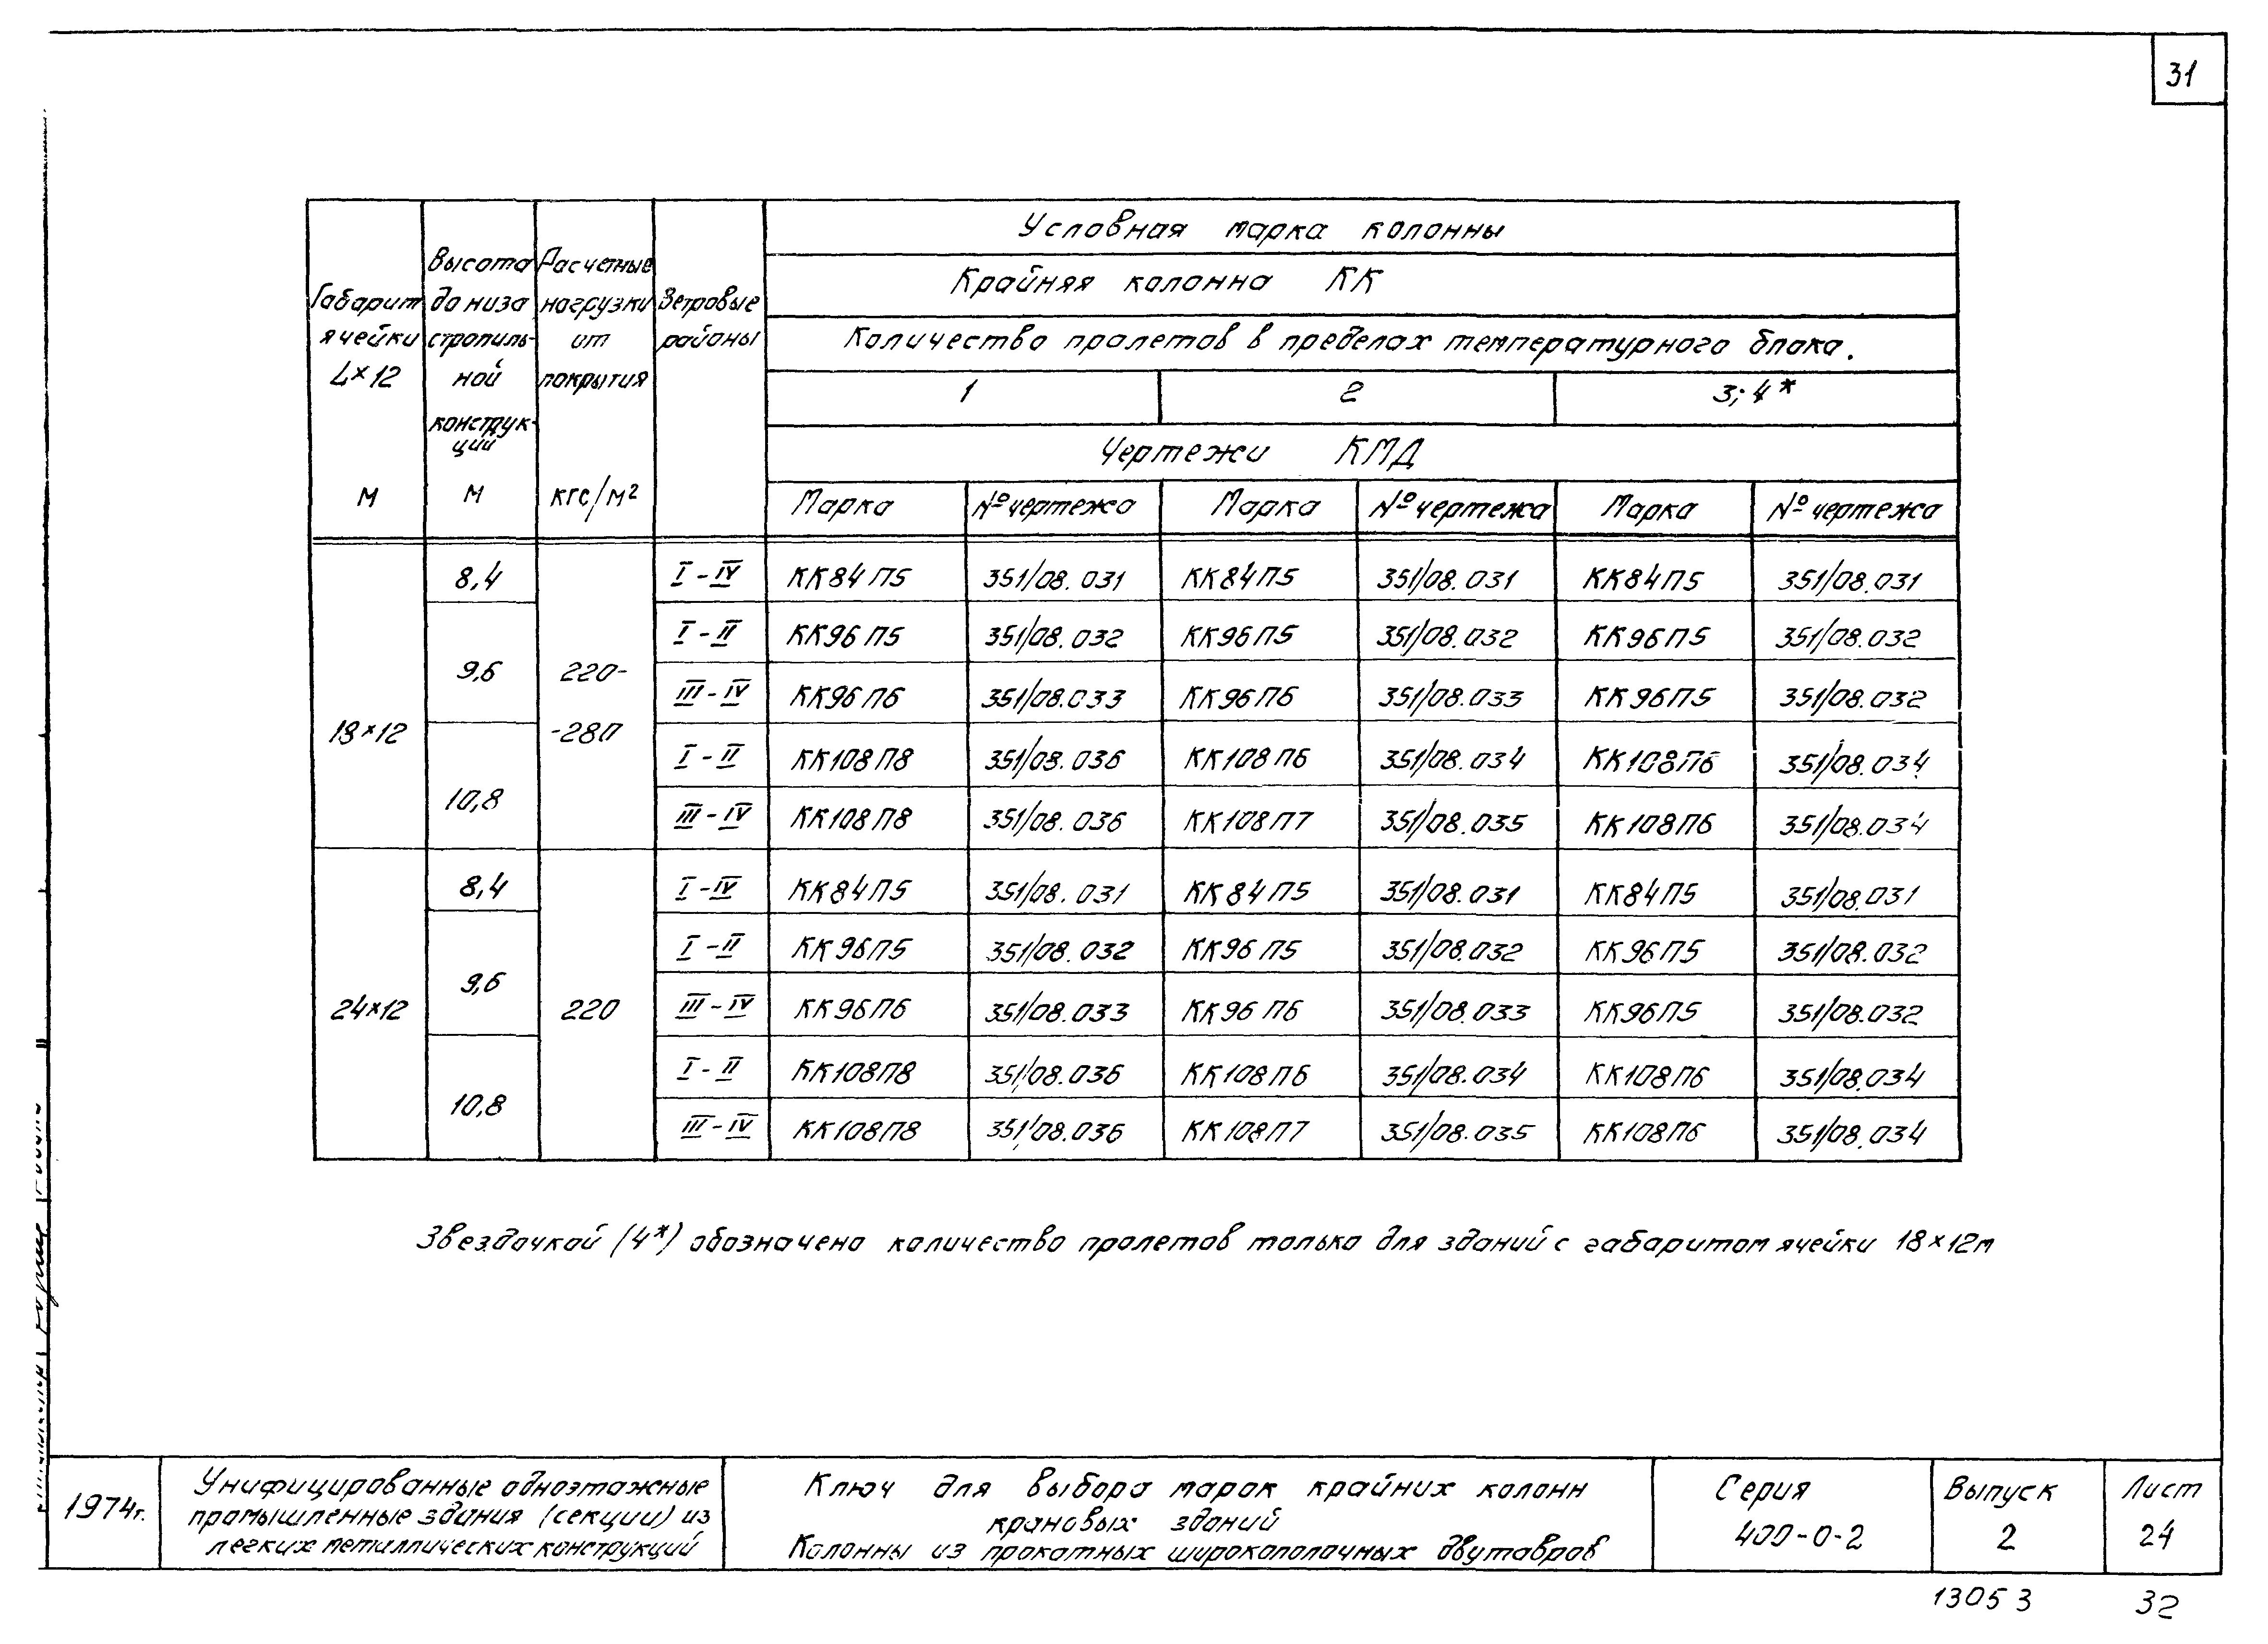 31
Условная марка колонны
Крайняя колонна КК
Количество пролетов в пределах температурного блока.
1 2 3; 4*
Чертежи КМД
Габарит ячейки L×12 м
Высота до низа стропиль-ной конструк-ций м
Расчетные нагрузки от покрытия кгс/м²
Ветровые районы
Марка № чертежа Марка № чертежа Марка № чертежа
18×12 8,4 220-280 I-IV КК84П5 351/08.031 КК84П5 351/08.031 КК84П5 351/08.031
9,6 I-II КК96П5 351/08.032 КК96П5 351/08.032 КК96П5 351/08.032
III-IV КК96П6 351/08.033 КК96П6 351/08.033 КК96П5 351/08.032
10,8 I-II КК108П8 351/08.036 КК108П6 351/08.034 КК108П6 351/08.034
III-IV КК108П8 351/08.036 КК108П7 351/08.035 КК108П6 351/08.034
24×12 8,4 220 I-IV КК84П5 351/08.031 КК84П5 351/08.031 КК84П5 351/08.031
9,6 I-II КК96П5 351/08.032 КК96П5 351/08.032 КК96П5 351/08.032
III-IV КК96П6 351/08.033 КК96П6 351/08.033 КК96П5 351/08.032
10,8 I-II КК108П8 351/08.036 КК108П6 351/08.034 КК108П6 351/08.034
III-IV КК108П8 351/08.036 КК108П7 351/08.035 КК108П6 351/08.034
Звездочкой (4*) обозначено количество пролетов только для зданий с габаритом ячейки 18×12м
1974г.
Унифицированные одноэтажные
промышленные здания (секции) из
легких металлических конструкций
Ключ для выбора марок крайних колонн
крановых зданий
Колонны из прокатных широкополочных двутавров
Серия
400-0-2
Выпуск
2
Лист
24
13053 32